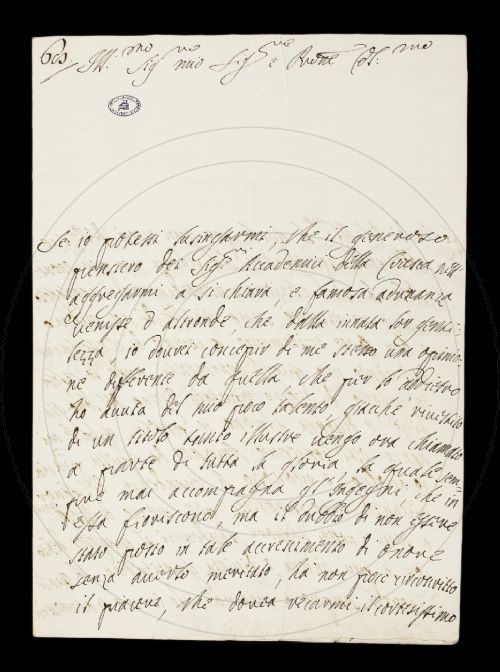 603
Ill.mo Sig.r mio Sig.re e Pron̄e Col.mo
Se io potessi lusingarmi, che il generoso
pensiero dei Sig.ri Accademici della Crusca nell'
aggregarmi a sì chiara, e famosa adunanza
venisse d'altronde, che dalla innata lor genti-
lezza, io dovrei concepir di me stesso una opinio-
ne differente da quella, che per lo addietro
ho avuta del mio poco talento, giacchè rivestito
di un titolo tanto illustre vengo ora chiamato
a parte di tutta la gloria, la quale sem-
pre mai accompagna gl'Ingegni, che in
essa fioriscono, ma il dubbio di non essere
stato posto in tale accrescimento di onore
senza averlo meritato, ha non poco
il piacere, che dovea recarmi il cortesissimo